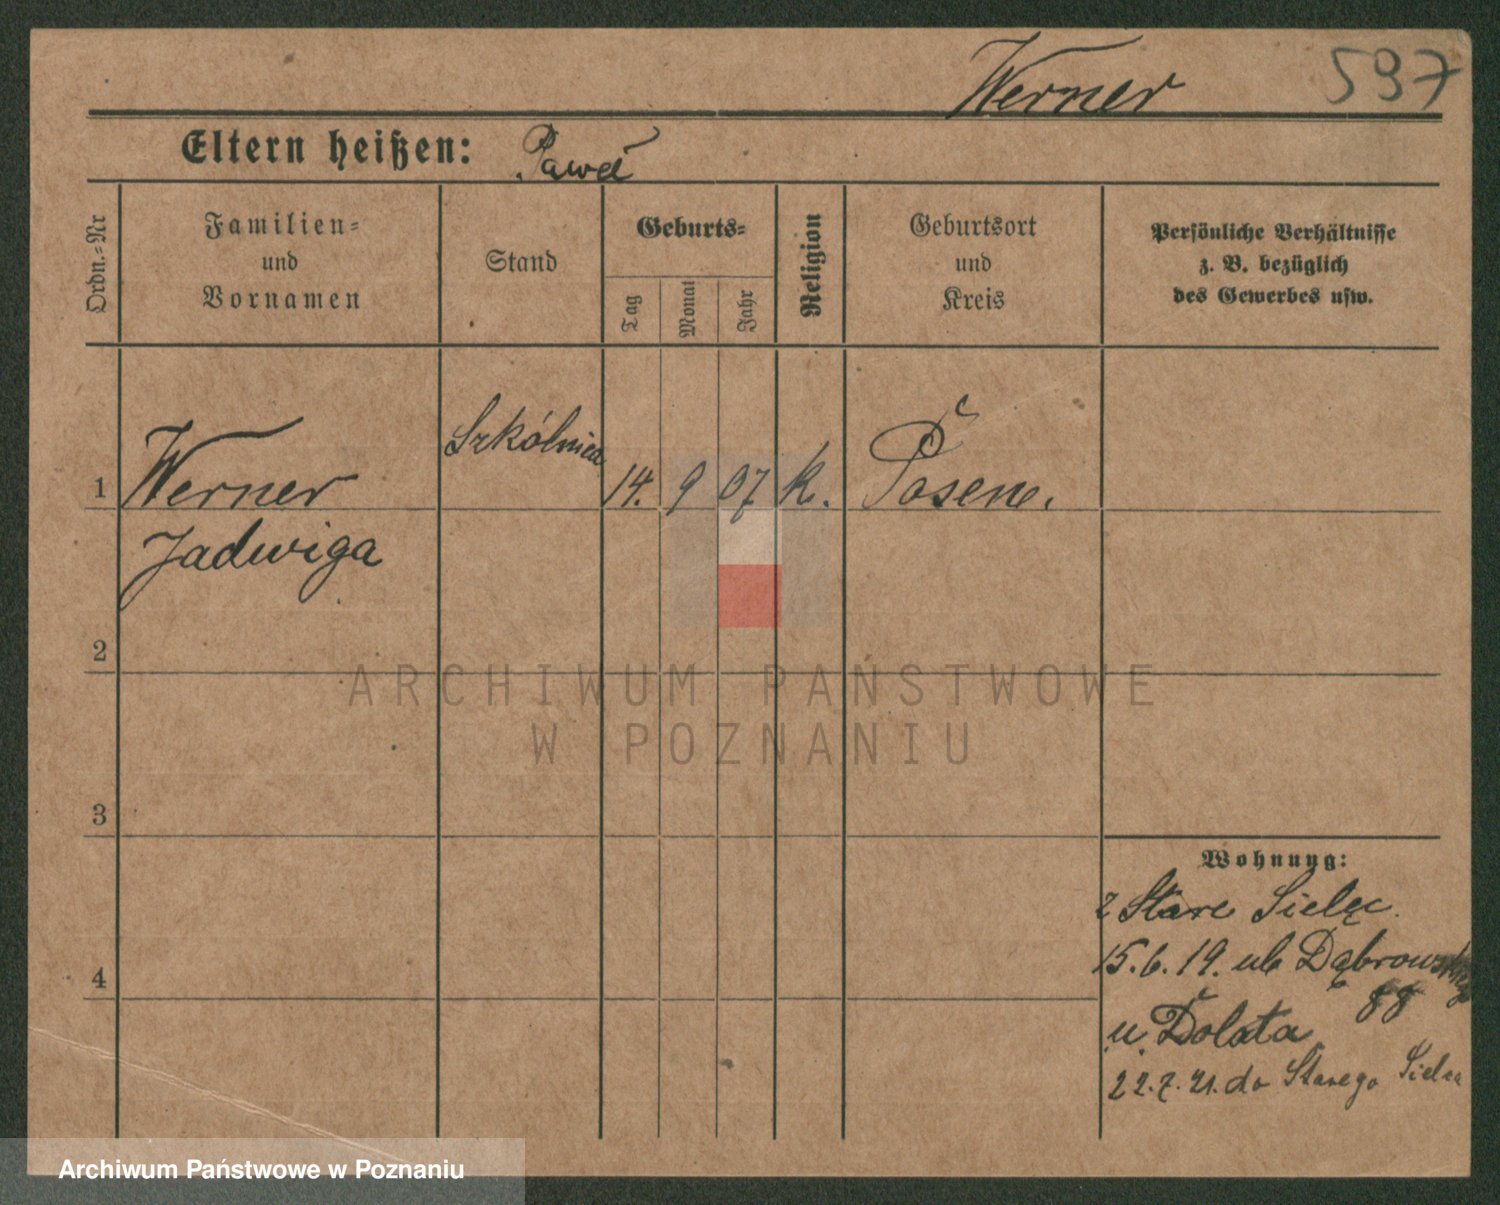 Werner 597
Eltern heißen: Paweł
Ordn.-Nr
Familien-
und
Vornamen
Stand
Geburts-
Tag
Monat
Jahr
Religion
Geburtsort
und
Kreis
Persönliche Verhältnisse
z. B. bezüglich
des Gewerbes usw.
1 Werner Szkólnica 14. 9 07 k. Posen.
Jadwiga
2
3
4
Wohnung:
z Stare Sielec
15.6.19. ul. Dąbrowskiego
88
u Dolata
22.7.21. do Starego Sielca
ARCHIWUM PAŃSTWOWE
W POZNANIU
Archiwum Państwowe w Poznaniu